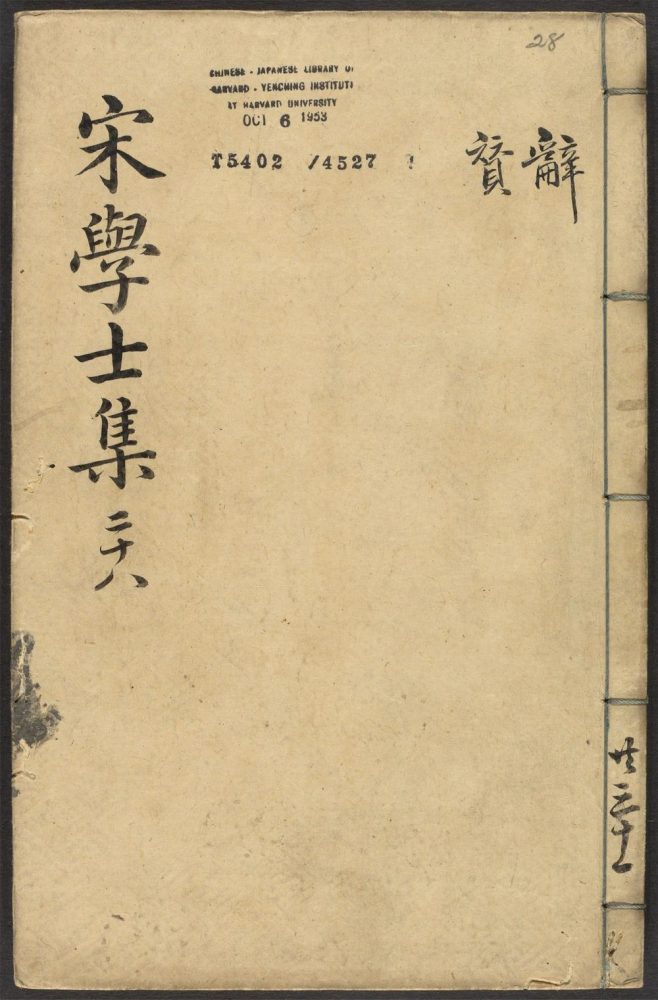 28
CHINESE - JAPANESE LIBRARY OF
HARVARD - YENCHING INSTITUTE
AT HARVARD UNIVERSITY
OCT 6 1953
T5402 /4527
辭
賛
宋學士集 二十八
共三十